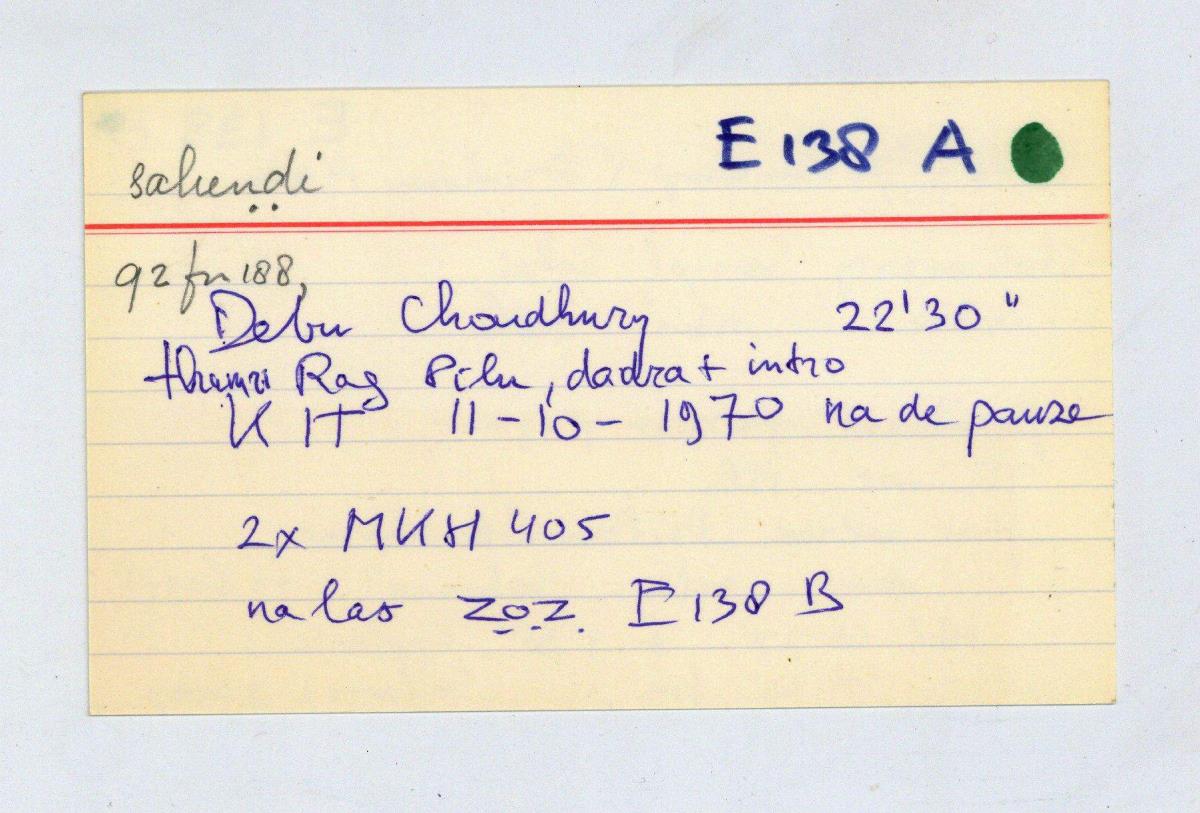 E 138 A
92 fr 188,
Debu Choudhury 22'30"
Rag Pilu, dadra + intro
KIT 11-10-1970 na de pauze
2x MKH 405
na las z.o.z. E 138 B